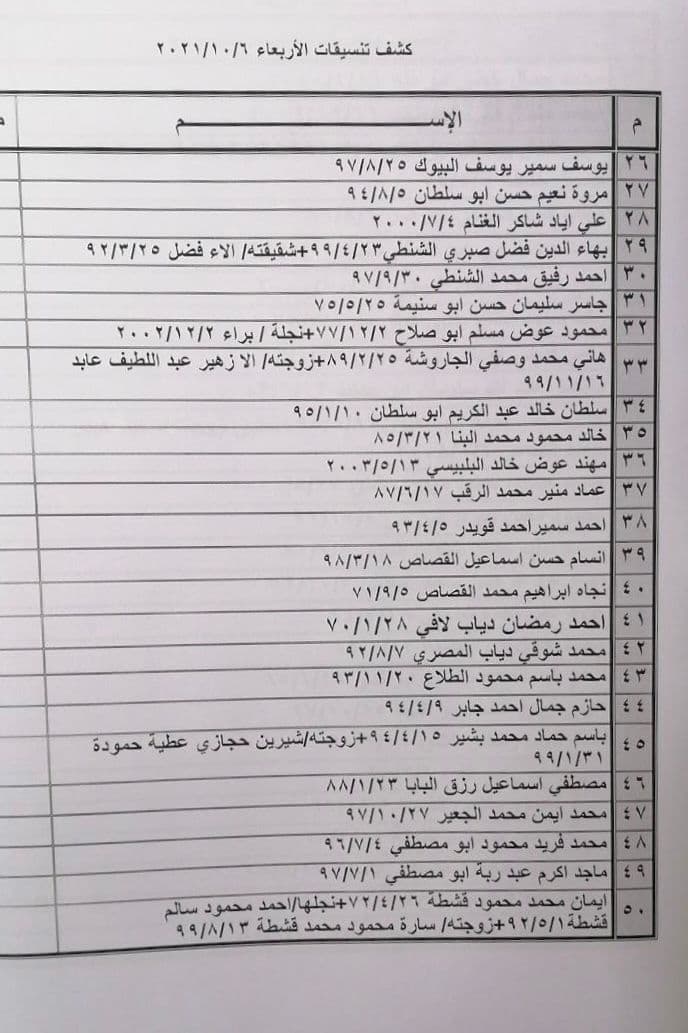 كشف تنسيقات الأربعاء ٢٠٢١/١٠/٦
م الإســـــــــم م
٢٦ يوسف سمير يوسف البيوك ٩٧/٨/٢٥
٢٧ مروة نعيم حسن ابو سلطان ٩٤/٨/٥
٢٨ علي اياد شاكر الغنام ٢٠٠٠/٧/٤
٢٩ بهاء الدين فضل صبري الشنطي٩٩/٤/٢٣+شقيقته/ الاء فضل ٩٢/٣/٢٥
٣٠ احمد رفيق محمد الشنطي ٩٧/٩/٣٠
٣١ جاسر سليمان حسن ابو سنيمة ٧٥/٥/٢٥
٣٢ محمود عوض مسلم ابو صلاح ٧٧/١٢/٢+نجلة / براء ٢٠٠٢/١٢/٢
٣٣ هاني محمد وصفي الجاروشة ٨٩/٢/٢٥+زوجته/ الا زهير عبد اللطيف عابد
٩٩/١١/١٦
٣٤ سلطان خالد عبد الكريم ابو سلطان ٩٥/١/١٠
٣٥ خالد محمود محمد البنا ٨٥/٣/٢١
٣٦ مهند عوض خالد البلبيسي ٢٠٠٣/٥/١٣
٣٧ عماد منير محمد الرقب ٨٧/٦/١٧
٣٨ احمد سميراحمد قويدر ٩٣/٤/٥
٣٩ انسام حسن اسماعيل القصاص ٩٨/٣/١٨
٤٠ نجاه ابراهيم محمد القصاص ٧١/٩/٥
٤١ احمد رمضان دياب لافي ٧٠/١/٢٨
٤٢ محمد شوقي دياب المصري ٩٢/٨/٧
٤٣ محمد باسم محمود الطلاع ٩٣/١١/٢٠
٤٤ حازم جمال احمد جابر ٩٤/٤/٩
٤٥ باسم حماد محمد بشير ٩٤/٤/١٥+زوجته/شيرين حجازي عطية حمودة
٩٩/١/٣١
٤٦ مصطفي اسماعيل رزق البابا ٨٨/١/٢٣
٤٧ محمد ايمن محمد الجعير ٩٧/١٠/٢٧
٤٨ محمد فريد محمود ابو مصطفي ٩٦/٧/٤
٤٩ ماجد اكرم عبد ربة ابو مصطفي ٩٧/٧/١
٥٠ ايمان محمد محمود قشطة ٧٢/٤/٢٦+نجلها/احمد محمود سالم
قشطة٩٢/٥/١+زوجته/ سارة محمود محمد قشطة ٩٩/٨/١٣